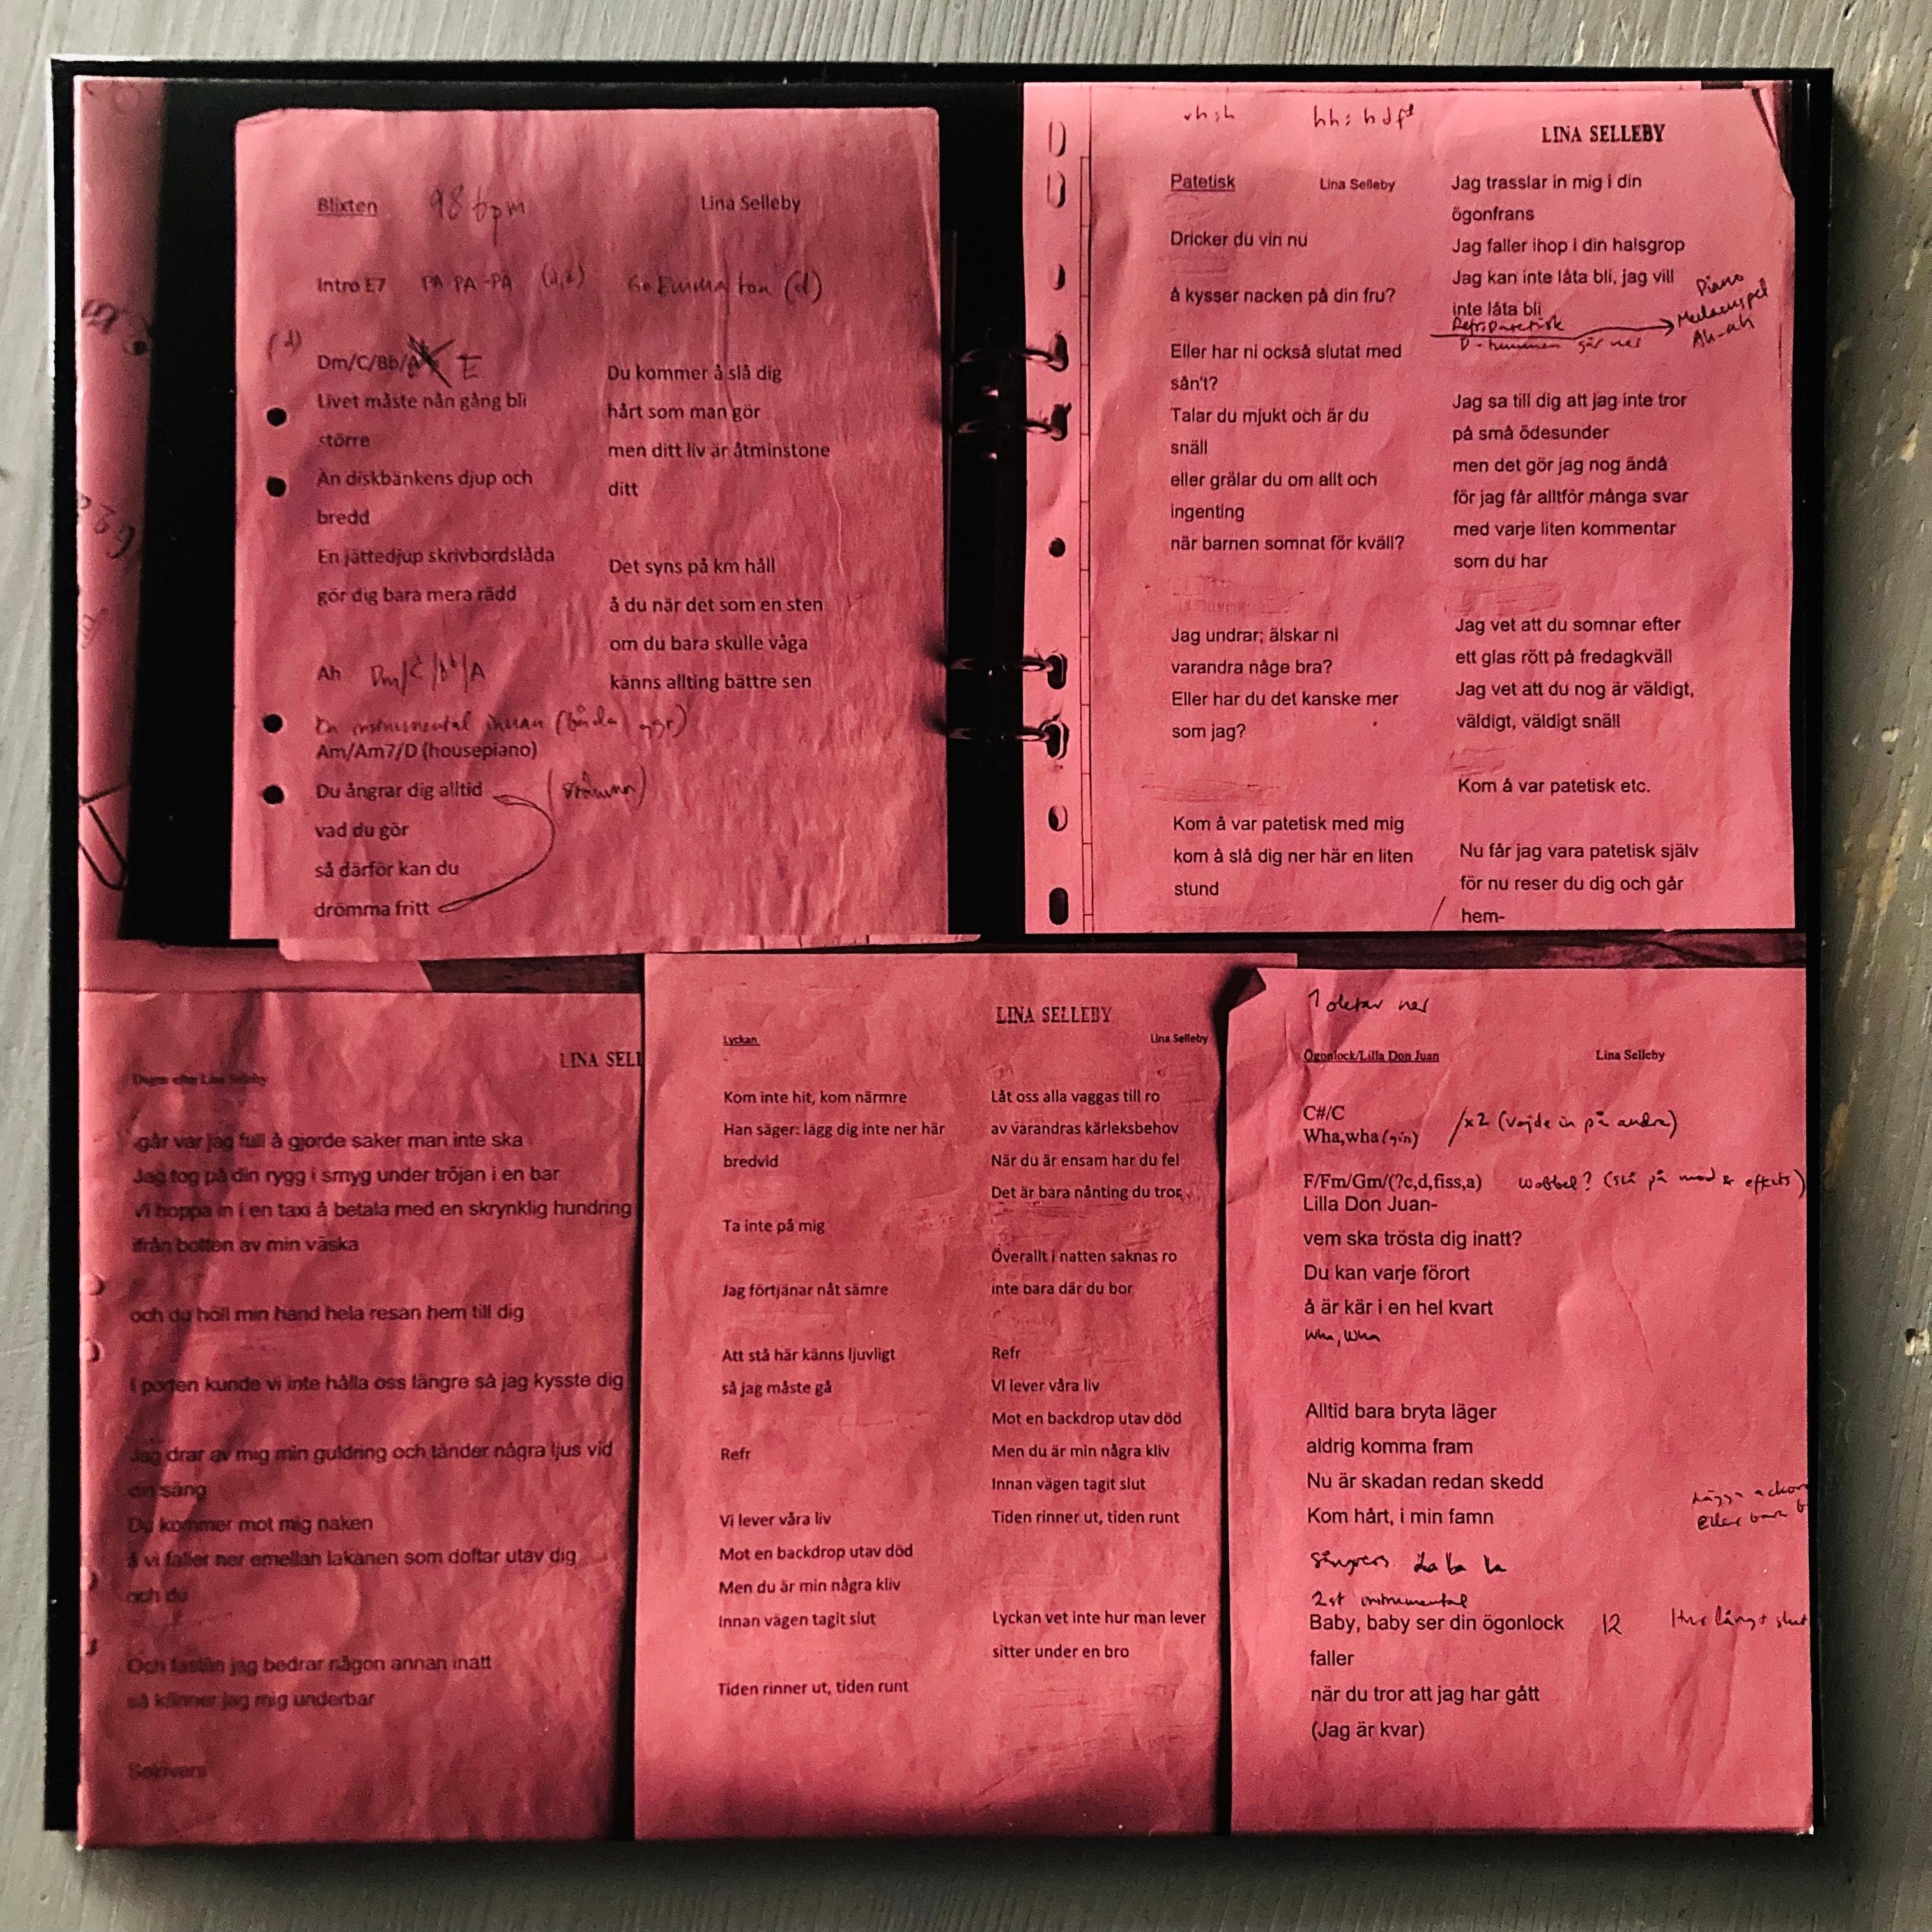 Blixten 98 bpm Lina Selleby
Intro E7 PA PA-PA (d)
(d)
Dm/C/Bb/ E
Livet måste nån gång bli
större
Än diskbänkens djup och
bredd
En jättedjup skrivbordslåda
gör dig bara mera rädd
Ah Dm/C/Bb/A
En instrumental innan (båda ggr)
Am/Am7/D (housepiano)
Du ångrar dig alltid (stämma)
vad du gör
så därför kan du
drömma fritt
Du kommer å slå dig
hårt som man gör
men ditt liv är åtminstone
ditt
Det syns på km håll
å du när det som en sten
om du bara skulle våga
känns allting bättre sen
LINA SELLEBY
Patetisk Lina Selleby
Dricker du vin nu
å kysser nacken på din fru?
Eller har ni också slutat med
sån't?
Talar du mjukt och är du
snäll
eller grälar du om allt och
ingenting
när barnen somnat för kväll?
Jag undrar; älskar ni
varandra någe bra?
Eller har du det kanske mer
som jag?
Kom å var patetisk med mig
kom å slå dig ner här en liten
stund
Jag trasslar in mig i din
ögonfrans
Jag faller ihop i din halsgrop
Jag kan inte låta bli, jag vill
inte låta bli
Piano
Mellanspel
Ah-ah
Jag sa till dig att jag inte tror
på små ödesunder
men det gör jag nog ändå
för jag får alltför många svar
med varje liten kommentar
som du har
Jag vet att du somnar efter
ett glas rött på fredagkväll
Jag vet att du nog är väldigt,
väldigt, väldigt snäll
Kom å var patetisk etc.
Nu får jag vara patetisk själv
för nu reser du dig och går
hem-
LINA SELL
Dagen efter Lina Selleby
går var jag full å gjorde saker man inte ska
Jag tog på din rygg i smyg under tröjan i en bar
Vi hoppa in i en taxi å betala med en skrynklig hundring
ifrån botten av min väska
och du höll min hand hela resan hem till dig
I porten kunde vi inte hålla oss längre så jag kysste dig
Jag drar av mig min guldring och tänder några ljus vid
din säng
Du kommer mot mig naken
å vi faller ner emellan lakanen som doftar utav dig
och du
Och fastän jag bedrar någon annan inatt
så känner jag mig underbar
LINA SELLEBY
Lyckan Lina Selleby
Kom inte hit, kom närmre
Han säger: lägg dig inte ner här
bredvid
Ta inte på mig
Jag förtjänar nåt sämre
Att stå här känns ljuvligt
så jag måste gå
Refr
Vi lever våra liv
Mot en backdrop utav död
Men du är min några kliv
Innan vägen tagit slut
Tiden rinner ut, tiden runt
Låt oss alla vaggas till ro
av varandras kärleksbehov
När du är ensam har du fel
Det är bara nånting du tror
Överallt i natten saknas ro
inte bara där du bor
Refr
Vi lever våra liv
Mot en backdrop utav död
Men du är min några kliv
Innan vägen tagit slut
Tiden rinner ut, tiden runt
Lyckan vet inte hur man lever
sitter under en bro
1 oktav ner
Ögonlock/Lilla Don Juan Lina Selleby
C#/C
Wha,wha /x2 (vajde in på andra)
F/Fm/Gm/(?c,d,fiss,a) Wobbel? (slå på mod & effects)
Lilla Don Juan-
vem ska trösta dig inatt?
Du kan varje förort
å är kär i en hel kvart
Wha, Wha
Alltid bara bryta läger
aldrig komma fram
Nu är skadan redan skedd
Kom hårt, i min famn
Lägga ackor
Eller bara b
La la la
2st instrumental
Baby, baby ser din ögonlock 12 Hur långt slut
faller
när du tror att jag har gått
(Jag är kvar)